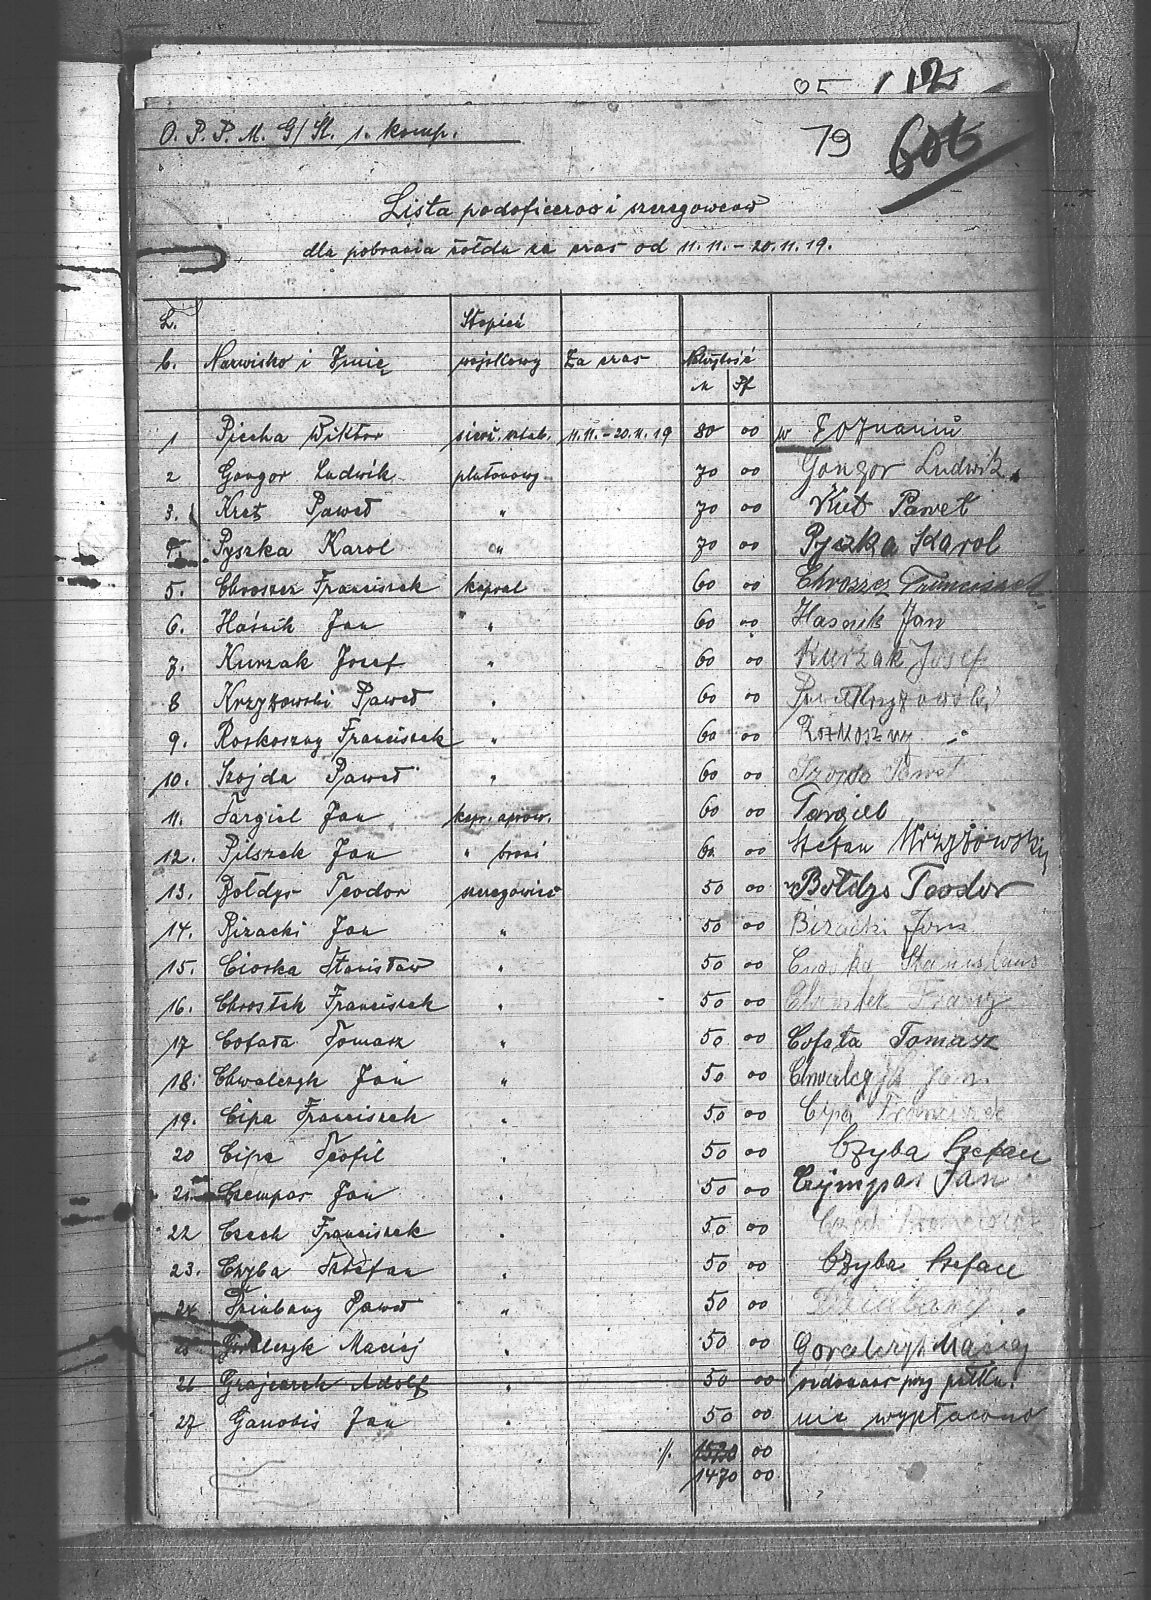 95 112
O. P. P. M. G/Śl. 1. komp.
79 606
Lista podoficerów i szeregowców
dla pobrania żołdu za czas od 11.11. – 20.11.19.
L. Stopień
b. Nazwisko i Imię wojskowy Za czas Należytość
M Pf
1 Piecha Wiktor sierż. sztab. 11.11. – 20.11.19 80 00 w Poznaniu
2 Gongor Ludwik plutonowy 70 00 Gongor Ludwik
3. Kret Paweł " 70 00 Paweł
4. Pyszka Karol " 70 00 Pyszka Karol
5. Chroszcz Franciszek kapral 60 00 Chroszcz Franciszek
6. Haśnik Jan " 60 00 Hasnik Jan
7. Kurzak Josef " 60 00 Kurzak Josef
8 Krzyżowski Paweł " 60 00 Krzyżowski
9. Roskoszny Franciszek " 60 00 Rozkoszny
10. Szojda Paweł " 60 00 Szojda Paweł
11. Targiel Jan kapr. aprow. 60 00 Targiel
12. Pilszek Jan " broni 60 00 Stefan Krzyżowski
13. Bołdys Teodor szeregowiec 50 00 Bołdys Teodor
14. Bizacki Jan " 50 00 Bizacki Jan
15. Cioska Stanisław " 50 00 Stanislaus
16. Chrostek Franciszek " 50 00 Chrostek Franz
17 Cofała Tomasz " 50 00 Cofała Tomasz
18. Chwalczyk Jan " 50 00 Jan
19. Cipa Franciszek " 50 00 Cipa Franciszek
20 Cipa Teofil " 50 00 Czyba Szefan
21. Czempas Jan " 50 00 Czympas Jan
22 Czech Franciszek " 50 00 Czech Franciszek
23. Czyba Stefan " 50 00 Czyba Szefan
24 Dziubany Paweł " 50 00 Dziubany
25 Goralczyk Maciej " 50 00 Goralczyk Maciej
26 Grajcarek Adolf " 50 00 ordonans przy pułku.
27 Ganobis Jan " 50 00 nie wypłacono
/. 1520 00
1470 00